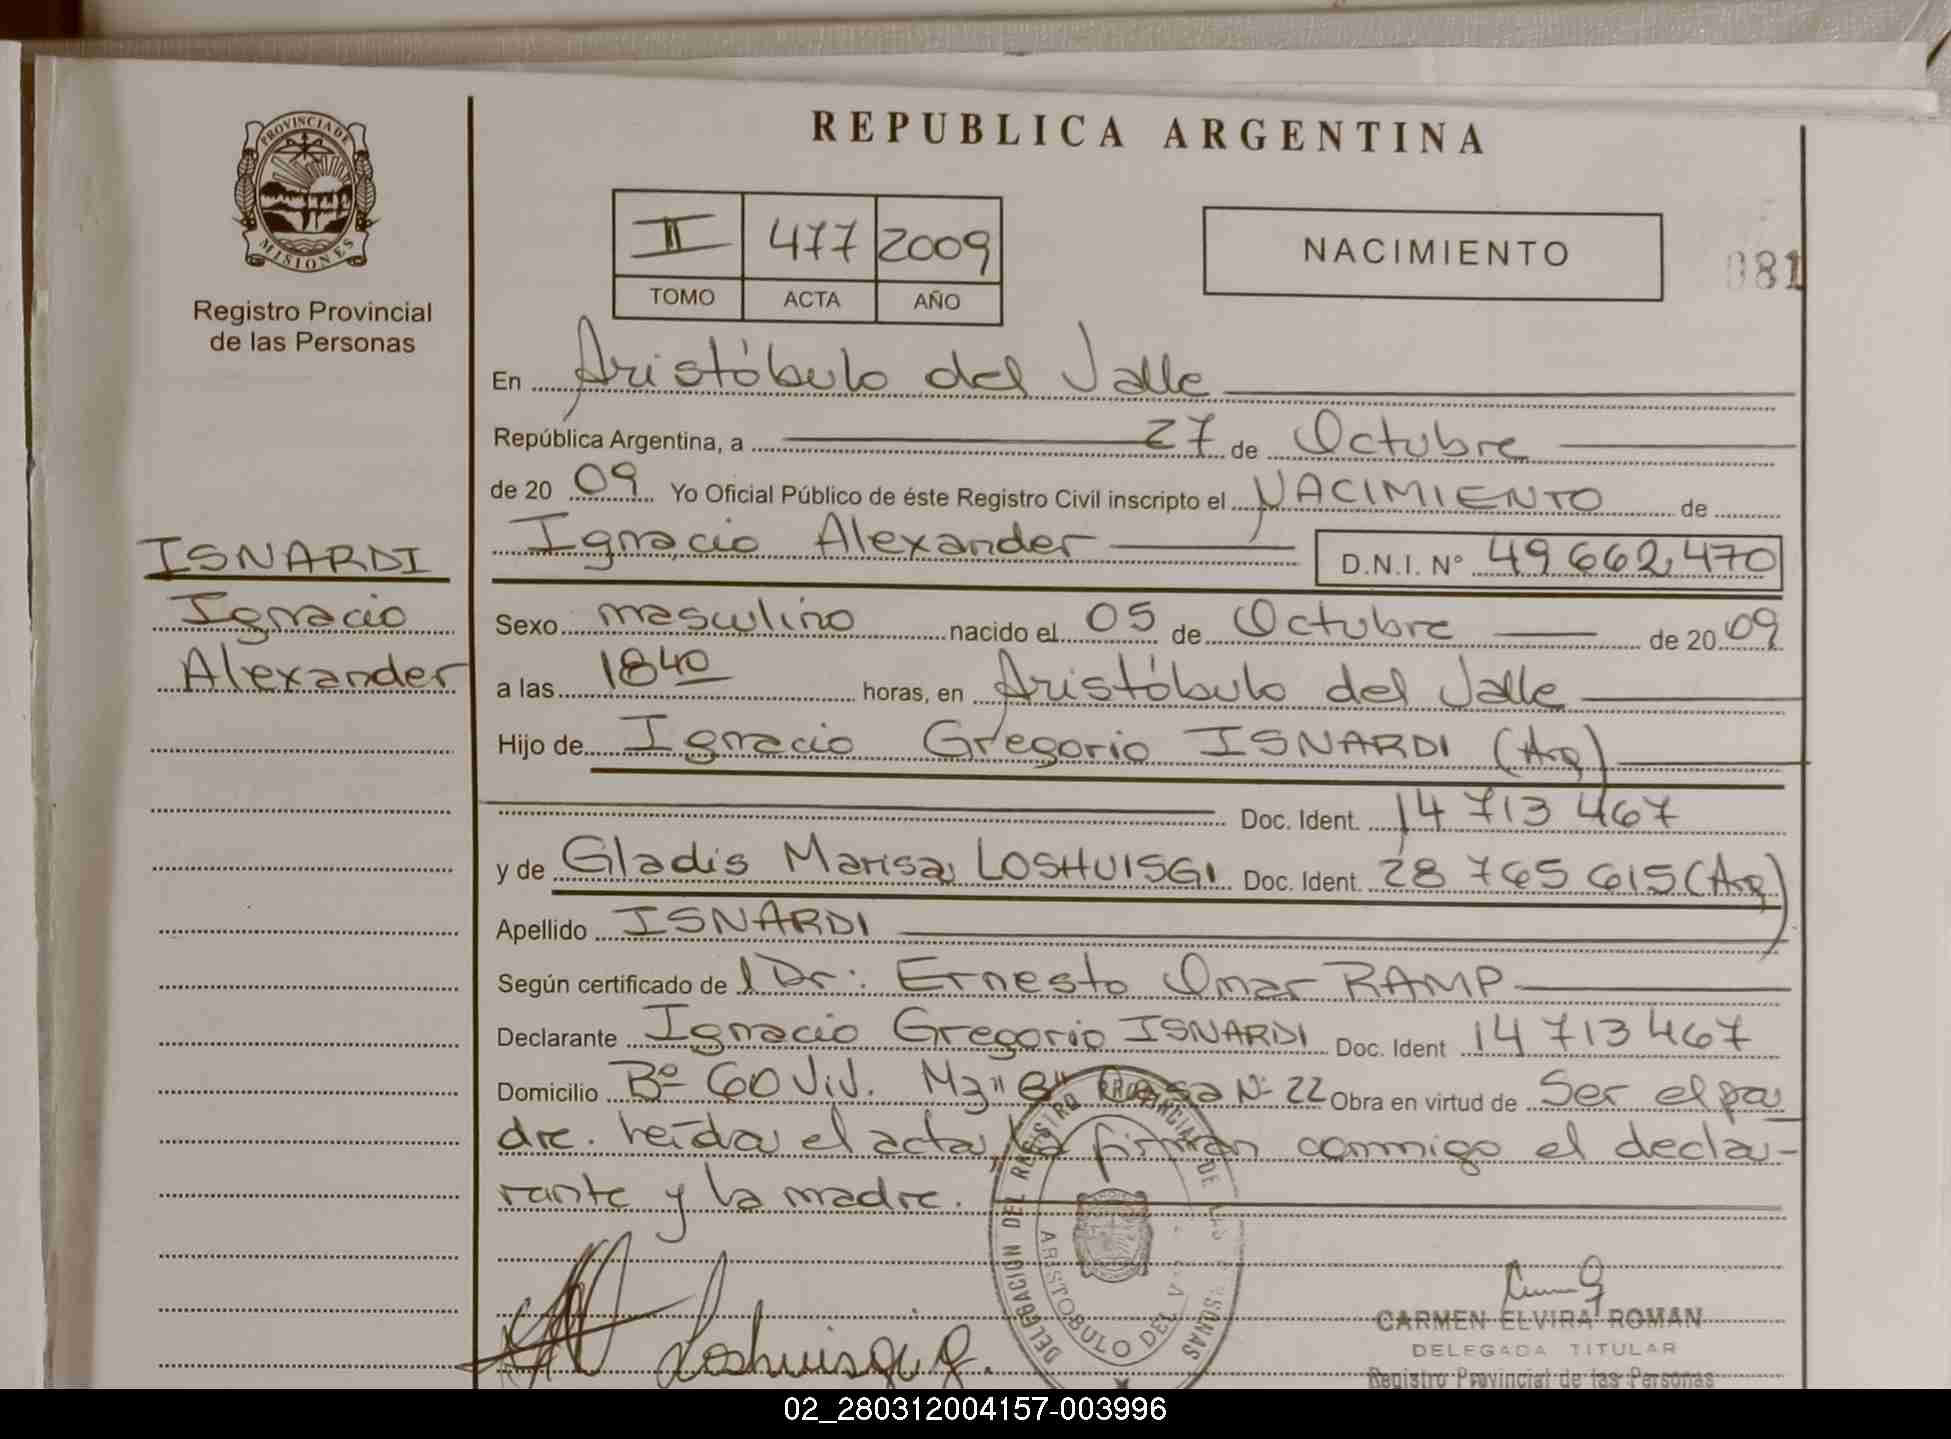 REPUBLICA ARGENTINA
PROVINCIA DE
MISIONES
Registro Provincial
de las Personas
II 477 2009
TOMO ACTA AÑO
NACIMIENTO
081
En Aristóbulo del Valle
República Argentina, a 27 de Octubre
de 20 09 Yo Oficial Público de éste Registro Civil inscripto el NACIMIENTO de
Ignacio Alexander D.N.I. Nº 49 662.470
ISNARDI
Ignacio
Alexander
Sexo masculino nacido el 05 de Octubre de 20 09
a las 1840 horas, en Aristóbulo del Valle
Hijo de Ignacio Gregorio ISNARDI (Arg)
Doc. Ident. 14 713 467
y de Gladis Marisa LOSHUISGI Doc. Ident. 28 765 615 (Arg)
Apellido ISNARDI
Según certificado de l Dr: Ernesto Omar RAMP
Declarante Ignacio Gregorio ISNARDI Doc. Ident 14 713 467
Domicilio Bº 60 Viv. Mz "B" Casa Nº 22 Obra en virtud de Ser el pa
dre. Leída el acta, la firman conmigo el decla-
rante y la madre.
DELEGACION DEL REGISTRO PROVINCIAL DE LAS PERSONAS
ARISTOBULO DEL V
CARMEN ELVIRA ROMAN
DELEGADA TITULAR
Registro Provincial de las Personas
02_280312004157-003996